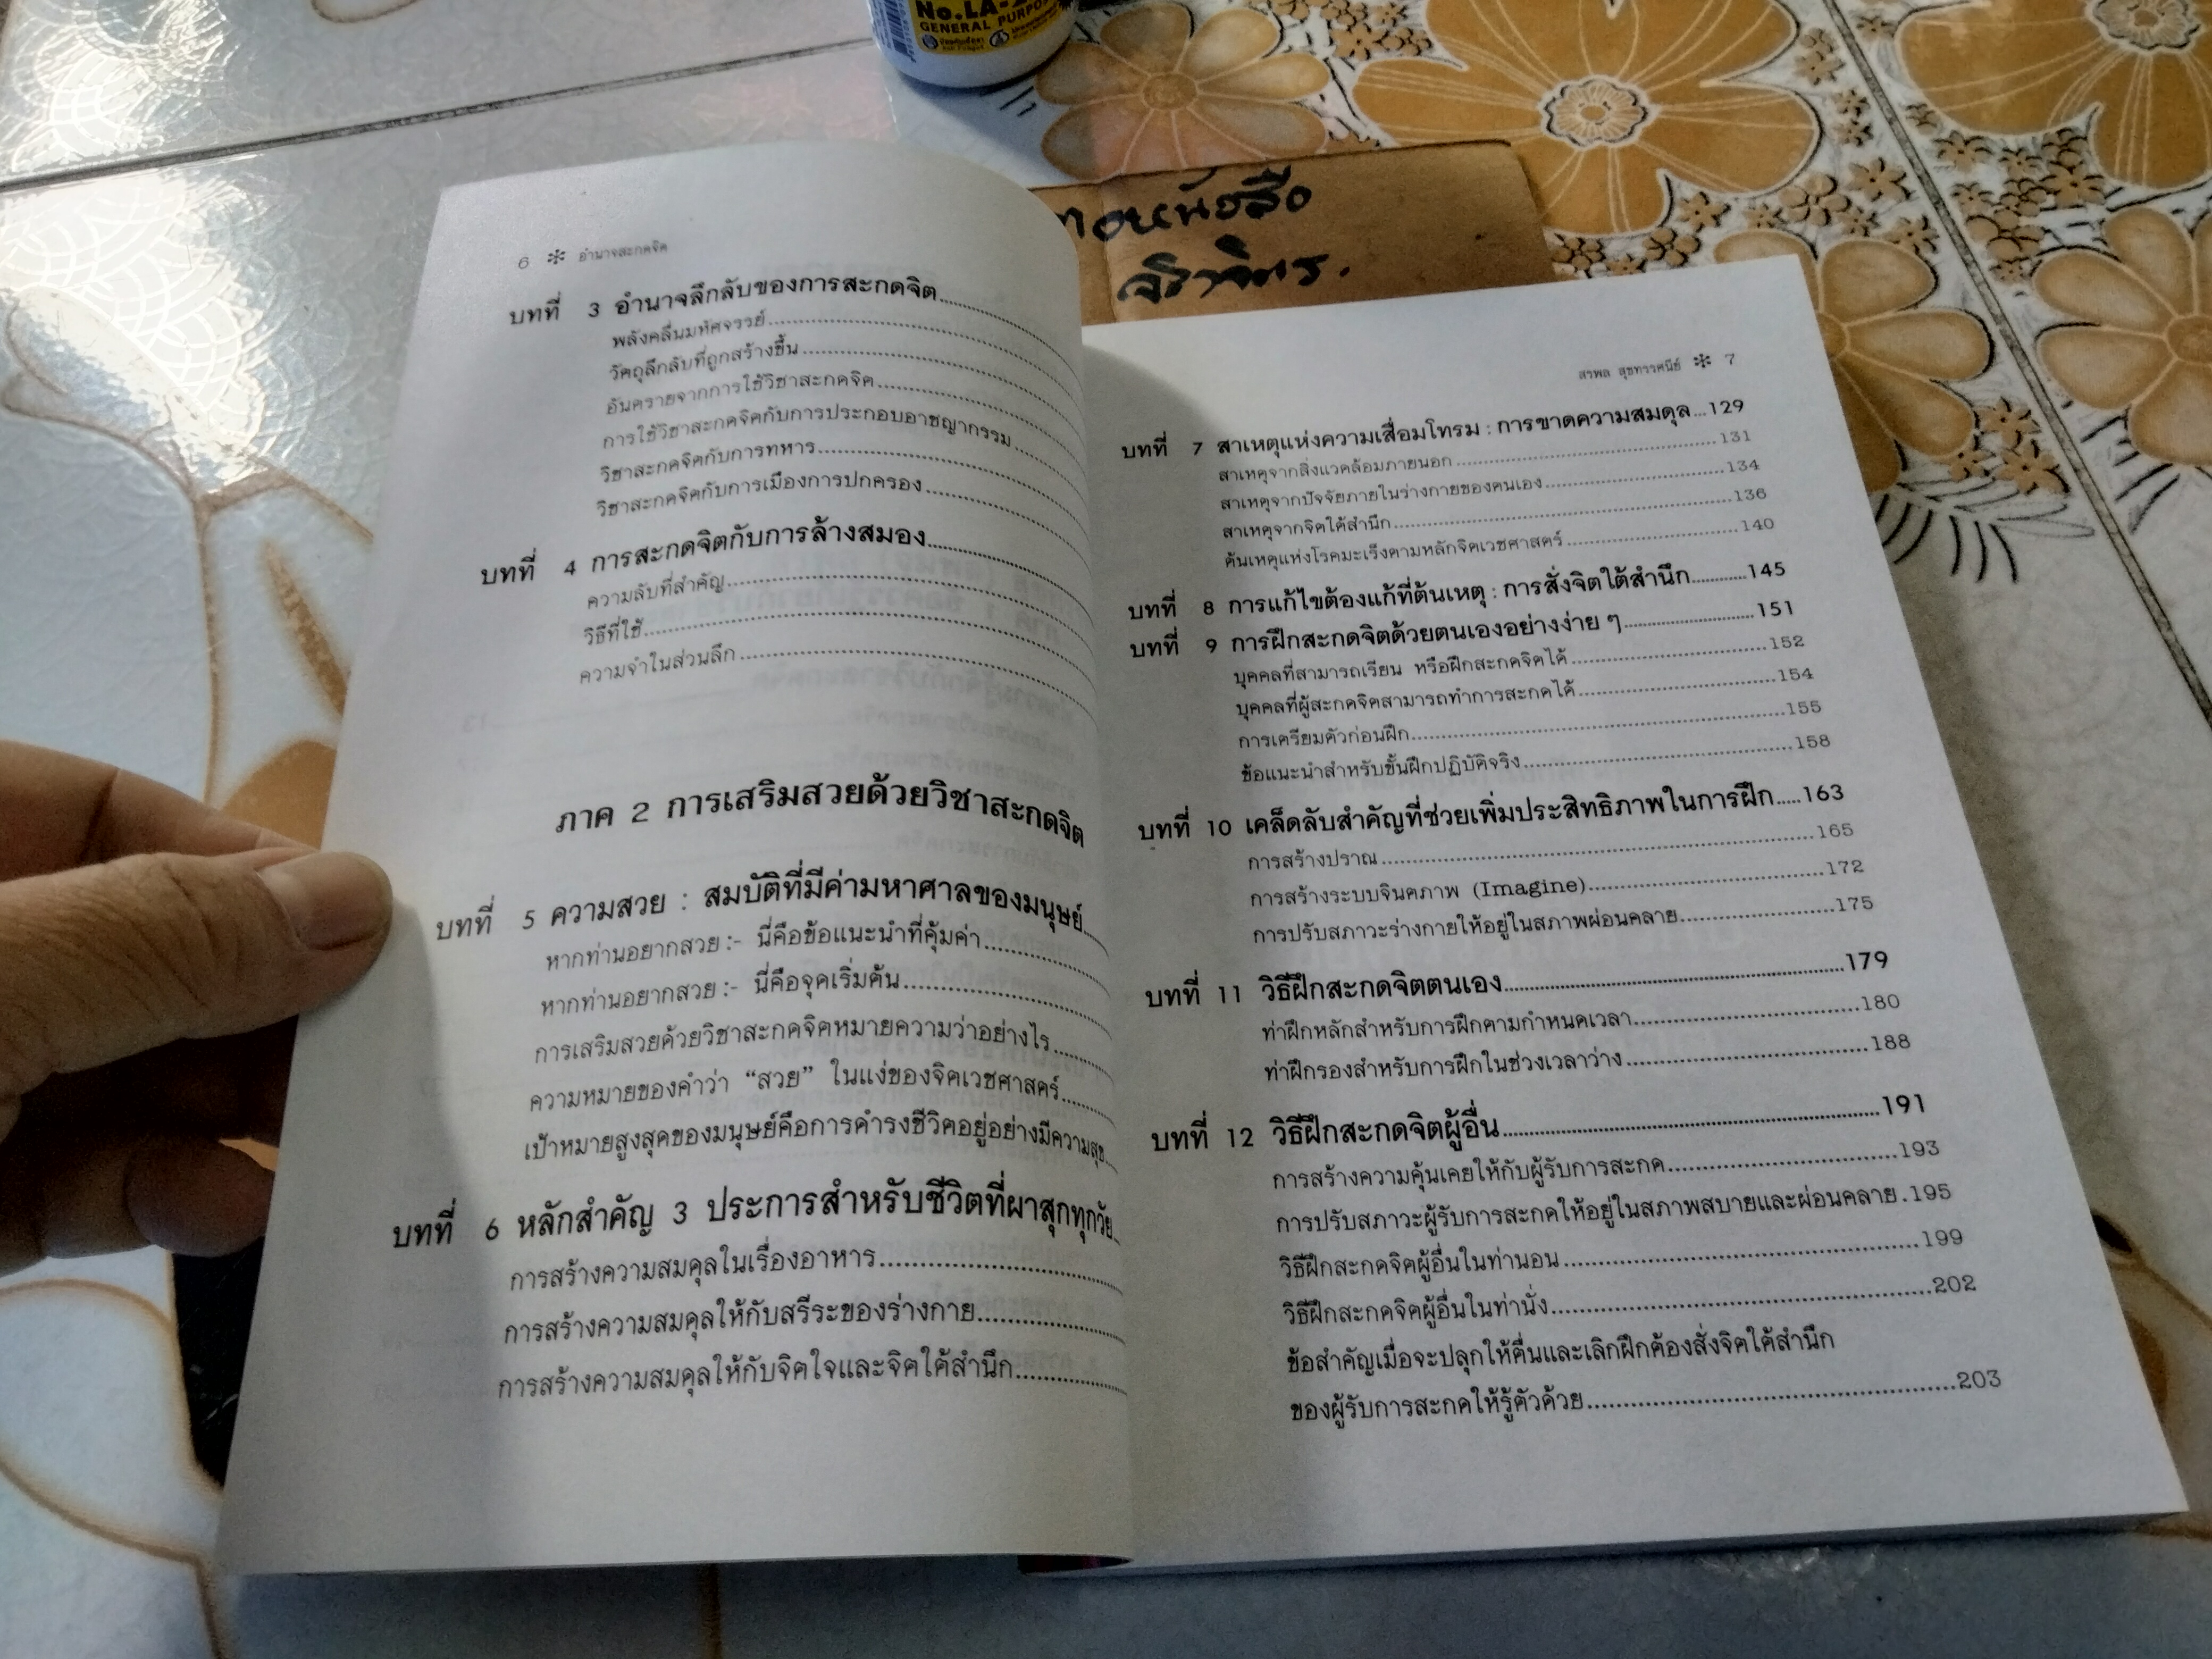 No.LA-
GENERAL PURPOSE
อหนังสือ
6 ✻ อำนาจสะกดจิต
บทที่ 3 อำนาจลึกลับของการสะกดจิต
พลังคลื่นมหัศจรรย์
วัตถุลึกลับที่ถูกสร้างขึ้น
อันตรายจากการใช้วิชาสะกดจิต
การใช้วิชาสะกดจิตกับการประกอบอาชญากรรม
วิชาสะกดจิตกับการทหาร
วิชาสะกดจิตกับการเมืองการปกครอง
บทที่ 4 การสะกดจิตกับการล้างสมอง
ความลับที่สำคัญ
วิธีที่ใช้
ความจำในส่วนลึก
ภาค 2 การเสริมสวยด้วยวิชาสะกดจิต
บทที่ 5 ความสวย : สมบัติที่มีค่ามหาศาลของมนุษย์
หากท่านอยากสวย :- นี่คือข้อแนะนำที่คุ้มค่า
หากท่านอยากสวย :- นี่คือจุดเริ่มต้น
การเสริมสวยด้วยวิชาสะกดจิตหมายความว่าอย่างไร
ความหมายของคำว่า “สวย” ในแง่ของจิตเวชศาสตร์
เป้าหมายสูงสุดของมนุษย์คือการดำรงชีวิตอยู่อย่างมีความสุข
บทที่ 6 หลักสำคัญ 3 ประการสำหรับชีวิตที่ผาสุกทุกวัย
การสร้างความสมดุลในเรื่องอาหาร
การสร้างความสมดุลให้กับสรีระของร่างกาย
การสร้างความสมดุลให้กับจิตใจและจิตใต้สำนึก
สรพล สุขทรรศนีย์ ✻ 7
บทที่ 7 สาเหตุแห่งความเสื่อมโทรม : การขาดความสมดุล...129
สาเหตุจากสิ่งแวดล้อมภายนอก...131
สาเหตุจากปัจจัยภายในร่างกายของตนเอง...134
สาเหตุจากจิตใต้สำนึก...136
ต้นเหตุแห่งโรคมะเร็งตามหลักจิตเวชศาสตร์...140
บทที่ 8 การแก้ไขต้องแก้ที่ต้นเหตุ : การสั่งจิตใต้สำนึก...145
บทที่ 9 การฝึกสะกดจิตด้วยตนเองอย่างง่าย ๆ...151
บุคคลที่สามารถเรียน หรือฝึกสะกดจิตได้...152
บุคคลที่ผู้สะกดจิตสามารถทำการสะกดได้...154
การเตรียมตัวก่อนฝึก...155
ข้อแนะนำสำหรับขั้นฝึกปฏิบัติจริง...158
บทที่ 10 เคล็ดลับสำคัญที่ช่วยเพิ่มประสิทธิภาพในการฝึก...163
การสร้างปราณ...165
การสร้างระบบจินตภาพ (Imagine)...172
การปรับสภาวะร่างกายให้อยู่ในสภาพผ่อนคลาย...175
บทที่ 11 วิธีฝึกสะกดจิตตนเอง...179
ท่าฝึกหลักสำหรับการฝึกตามกำหนดเวลา...180
ท่าฝึกรองสำหรับการฝึกในช่วงเวลาว่าง...188
บทที่ 12 วิธีฝึกสะกดจิตผู้อื่น...191
การสร้างความคุ้นเคยให้กับผู้รับการสะกด...193
การปรับสภาวะผู้รับการสะกดให้อยู่ในสภาพสบายและผ่อนคลาย.195
วิธีฝึกสะกดจิตผู้อื่นในท่านอน...199
วิธีฝึกสะกดจิตผู้อื่นในท่านั่ง...202
ข้อสำคัญเมื่อจะปลุกให้ตื่นและเลิกฝึกต้องสั่งจิตใต้สำนึก
ของผู้รับการสะกดให้รู้ตัวด้วย...203